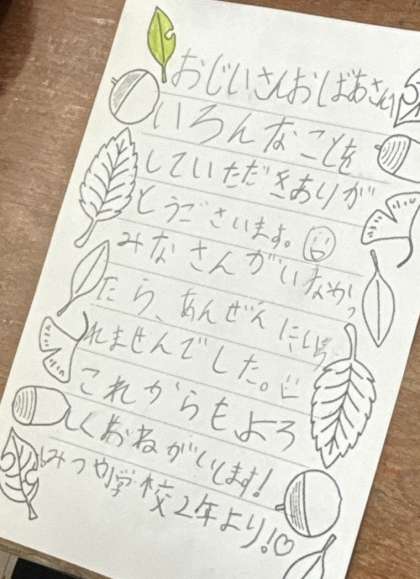 おじいさんおばあさん
いろんなことを
していただきありが
とうございます。
みなさんがいなかっ
たら、あんぜんにい
れませんでした。
これからもよろ
しくおねがいします!
みつや小学校2年より!♡